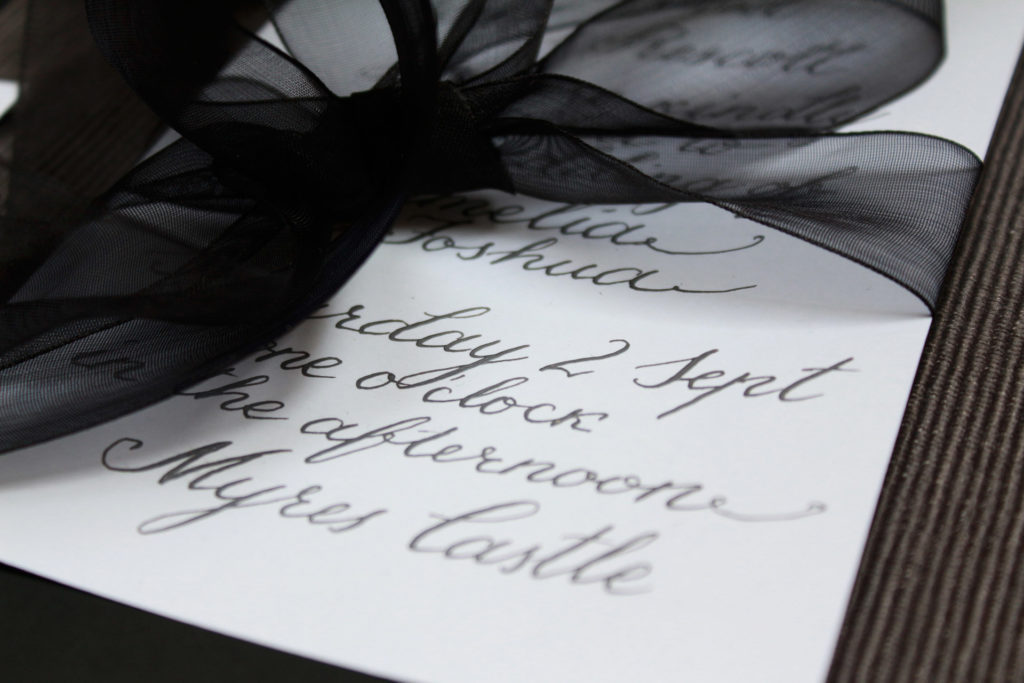 Prescott
kindly
to
melida
Joshua
urday 2 Sept
one o'clock
in the afternoon
Myres Castle